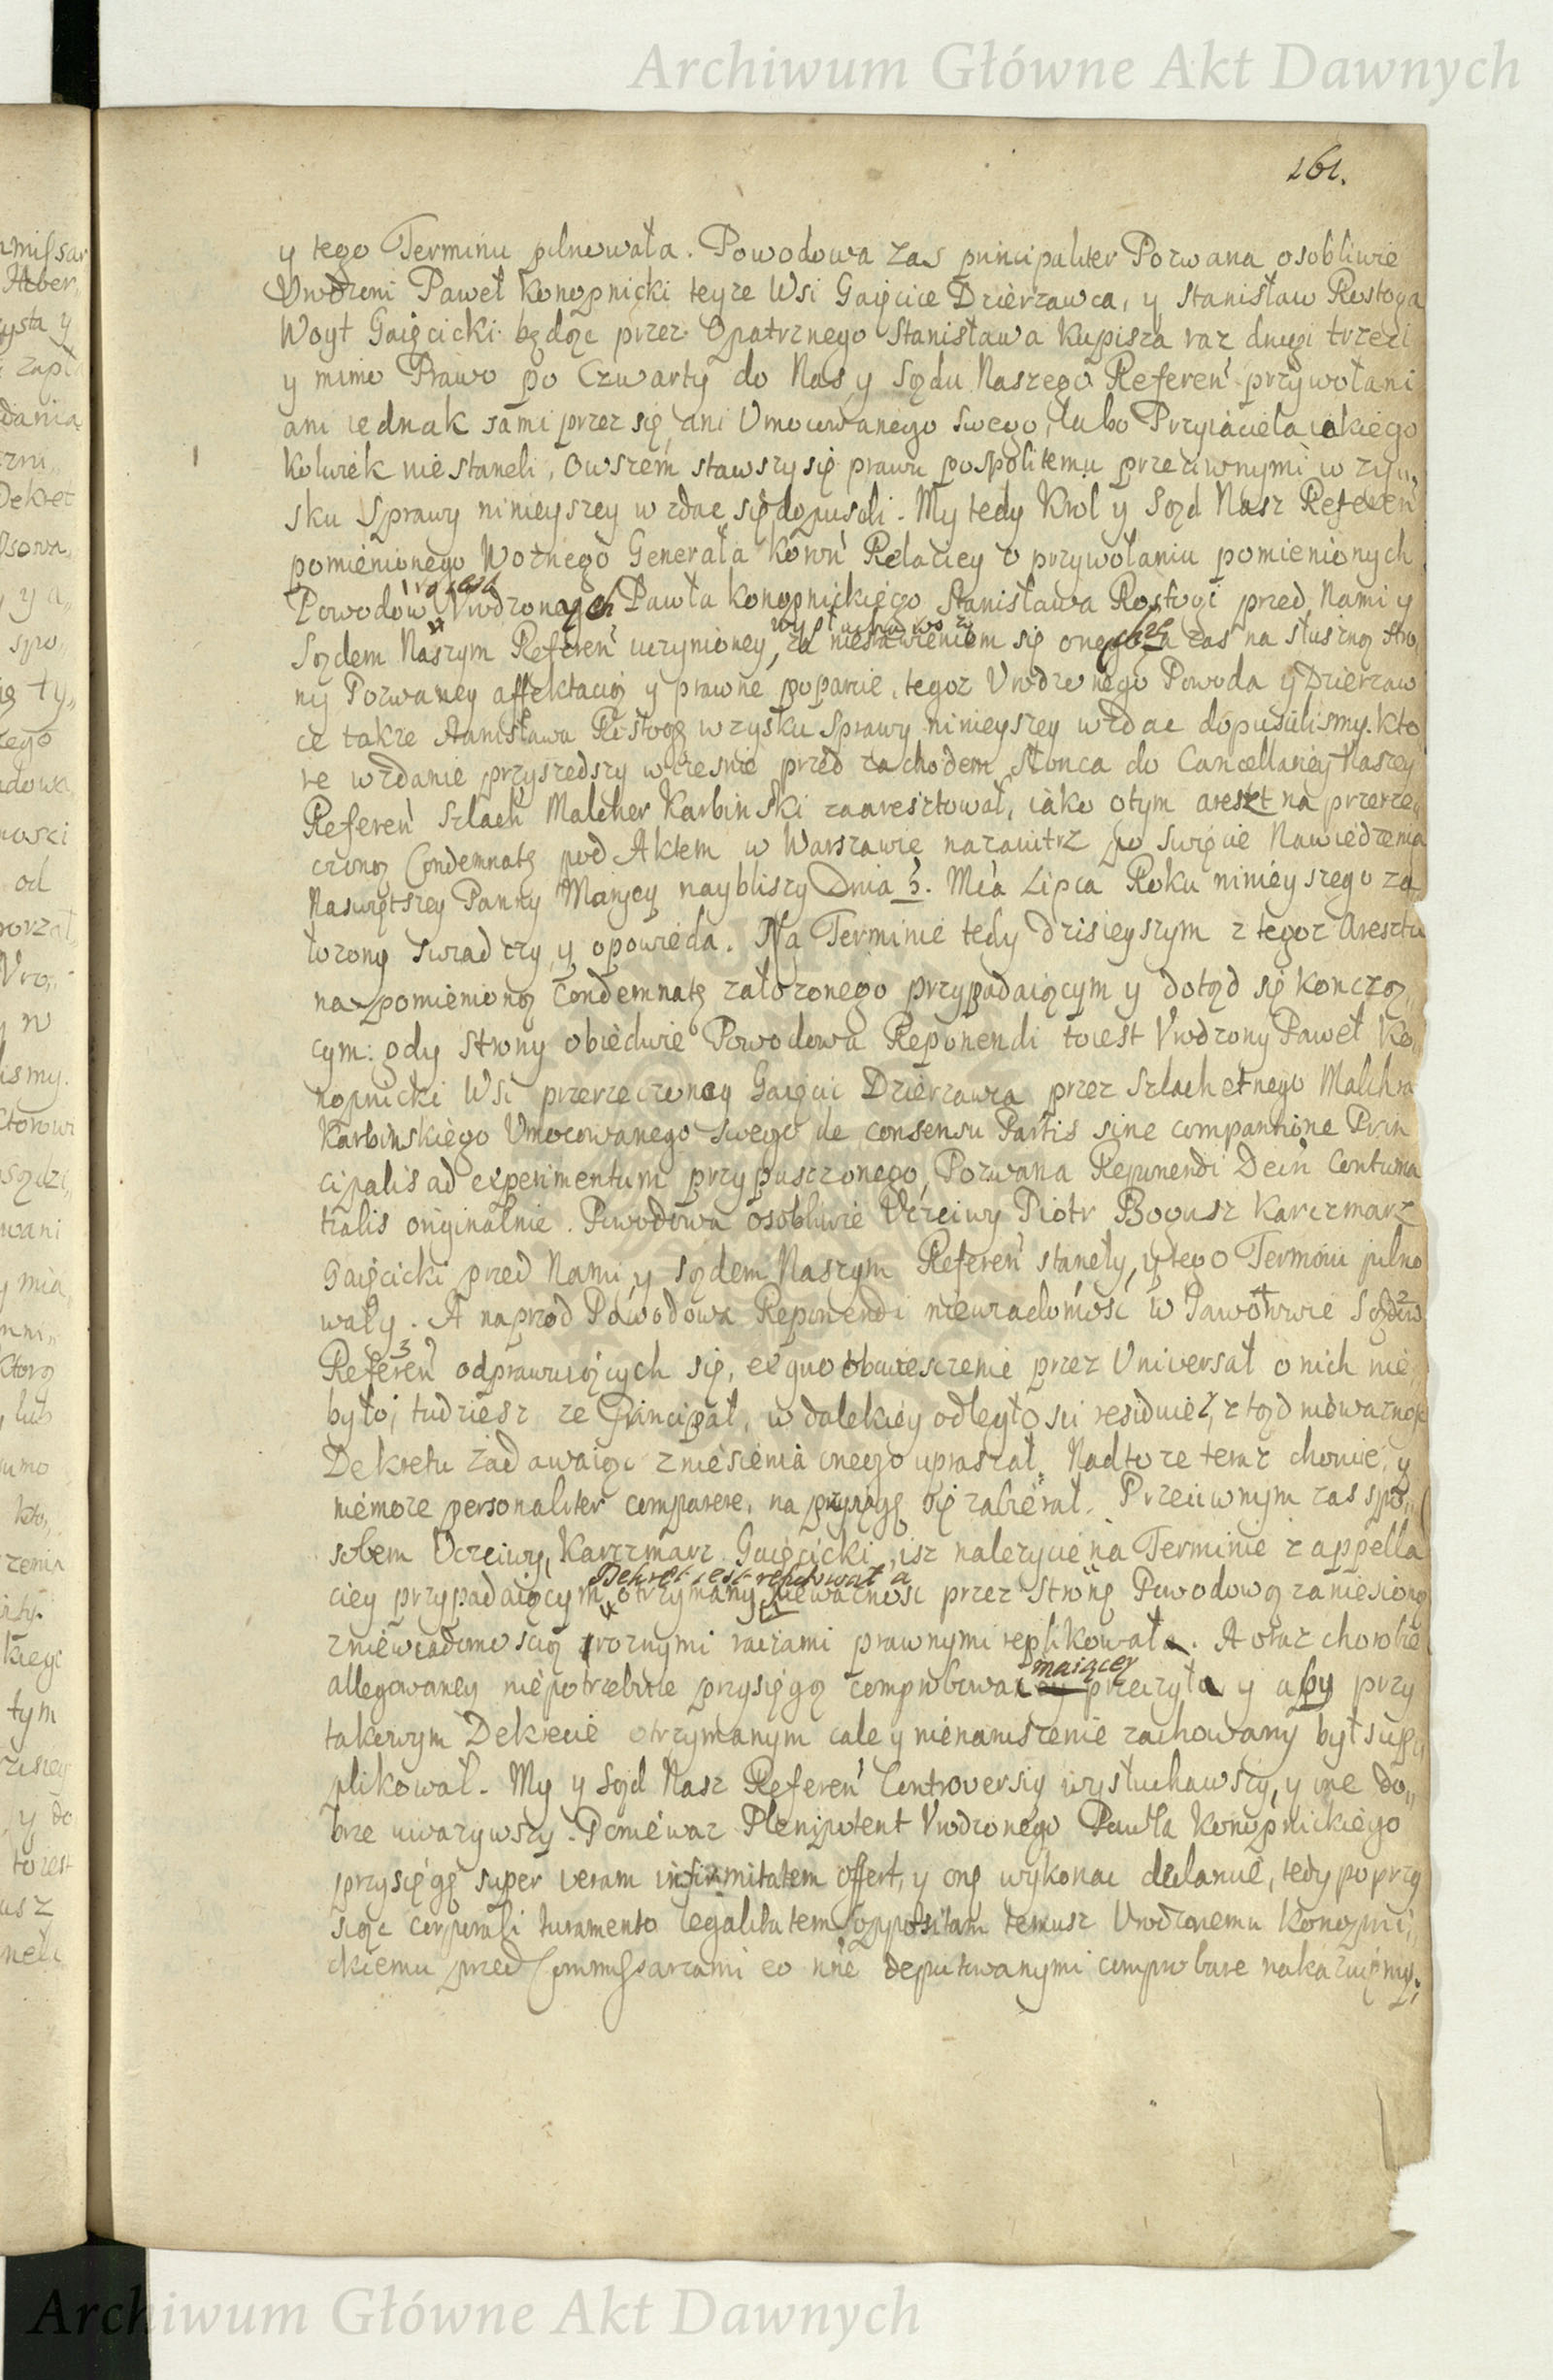 Archiwum Główne Akt Dawnych
161.
y tego Terminu pilnowała. Powodowa zas principaliter Pozwana osobliwie
Vrodzeni Paweł Konopnicki teyze Wsi Gaięcice Dzierzawca, y Stanisław Rostoga
Woyt Gaięcicki będąc przez Opatrznego Stanisława Kupisza raz drugi trzeci
y mimo Prawo po Czwarty do Nas y Sądu Naszego Referen przywołani
ani iednak sami przez się, ani Vmocowanego swego, lubo Przyiaciela iakiego
kolwiek nie staneli, Owszem stawszy się prawu pospolitemu przeciwnymi w zy„
sku Sprawy ninieyszey wzdac się dopuscili. My tedy Krol y Sąd Nasz Referen
pomienionego Woznego Generała Kown Relaciey o przywołaniu pomienionych
Powodow Vrodzonego Pawła Konopnickiego Stanisława Rostogi przed Nami y
Sądem Naszym Referen uczynioney, za niestawieniem się onego, a zas na słuszną stro
wysłuchawszy
ny Pozwaney affektacią y prawne poparcie, tegoz Vrodzonego Powoda y Dzierzaw
ce takze Stanisława Rostogę w zysku Sprawy ninieyszey wzdac dopuscilismy. Kto
re wzdanie przyszedszy wczesnie przed zachodem słonca do Cancellariey Naszey
Referen Szlach Malcher Karbinski zaaresztował, iako otym areszt na przerze„
czoną Condemnatę pod Aktem w Warszawie nazaiutrz po Swięcie Nawiedzenia
Naswiętszey Panny Maryey naybliszy Dnia 3. Mca Lipca Roku ninieyszego za
łozony swiadczy y opowieda. Na Terminie tedy dzisieyszym z tegoz Aresztu
na pomienioną Condemnatę załozonego przypadaiącym y dotąd się kończą
cym: gdy strony obiedwie Powodowa Reponendi toiest Vrodzony Paweł Ko
nopnicki Wsi przerzeczoney Gaięcic Dzierzawca przez Szlachetnego Malchra
Karbinskiego Vmocowanego swego de consensu Partis sine comparitione Prin
cipalis ad experimentum przypuszczonego, Pozwana Reponendi Decn Contuma
tialis originalnie. Powodowa osobliwie Vczciwy Piotr Bogusz Karczmarz
Gaięcicki przed Nami y Sądem Naszym Referen staneły, y tego Terminu pilno
wały. A naprzod Powodowa Reponendi niewiadomosc w Pawołowie Sądow
Referen odprawuiących się, ex quo obwieszczenie przez Uniwersał o nich nie
było, tudziesz ze Principał, w dalekiey odległosci residuie, z tąd niewaznosc
Dekretu zadawaiąc zniesienia onego upraszał. Nadto ze teraz choruie, y
niemoze personaliter comparere, na przysięgę się zabierał. Przeciwnym zas spo„
sobem Vczciwy, Karczmarz Gaięcicki, isz nalezycie na Terminie z appella
Dekret iest replikowała
ciey przypadaiącym otrzymany niewaznosc przez Stronę Powodową zaniesioną
zniewiadomoscią roznymi raciami prawnymi replikowała. A oraz chorobie
maiącey
allegowaney niepotrzebnie przysięgą comprobowaney przeczyła y aby przy
takowym Dekrecie otrzymanym cale y nienaruszenie zachowany był supp
plikował. My y Sąd Nasz Referen Controversiy wysłuchawszy, y one do„
brze uwazywszy. Poniewaz Plenipotent Vrodzonego Pawła Konopnickiego
przysięgę super veram infirmitatem offert, y onę wykonac declaruie, tedy poprzy
siąc corporali iuramento legalitatem oppositam temusz Vrodzonemu Konopni„
ckiemu przed Commissarzami eo nne deputowanymi comprobare nakazuiemy;
Archiwum Główne Akt Dawnych